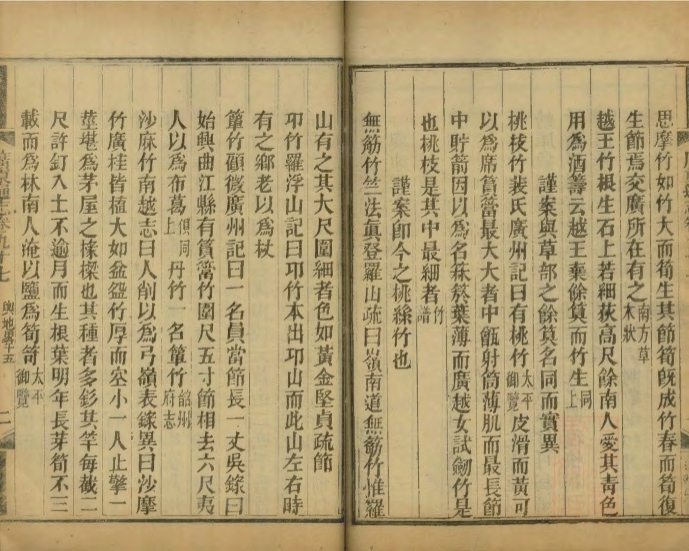 思摩竹如竹大而筍生其節筍既成竹春而筍復
生節焉交廣所在有之南方草木狀
越王竹根生石上若細荻高尺餘南人愛其青色
用為酒籌云越王棄餘筭而竹生同上
謹案與草部之餘筭名同而實異
桃枝竹裴氏廣州記曰有桃竹太平御覽皮滑而黃可
以為席
最大大者中甑射筒薄肌而最長節
中貯箭因以為名
葉薄而廣越女試劒竹是
也桃枝是其中最細者竹譜
謹案即今之桃絲竹也
無筋竹竺法真登羅山疏曰嶺南道無筋竹惟羅
山有之其大尺圍細者色如黃金堅貞疏節
卭竹羅浮山記曰卭竹本出卭山而此山左右時
有之鄉老以為杖
篁竹顧微廣州記曰一名員當節長一丈吳錄曰
始興曲江縣有篔當竹圍尺五寸節相去六尺夷
人以為布葛上俱同丹竹一名篁竹韶州府志
沙麻竹南越志曰人削以為弓嶺表錄異曰沙摩
竹廣桂皆植大如盌竹厚而空小一人止擎一
莖堪為茅屋之椽樑也其種者多彡其竿每截二
尺許釘入土不逾月而生根葉明年長芽筍不三
載而為林南人淹以鹽為筍笴太平御覽
輿地畧十五
二